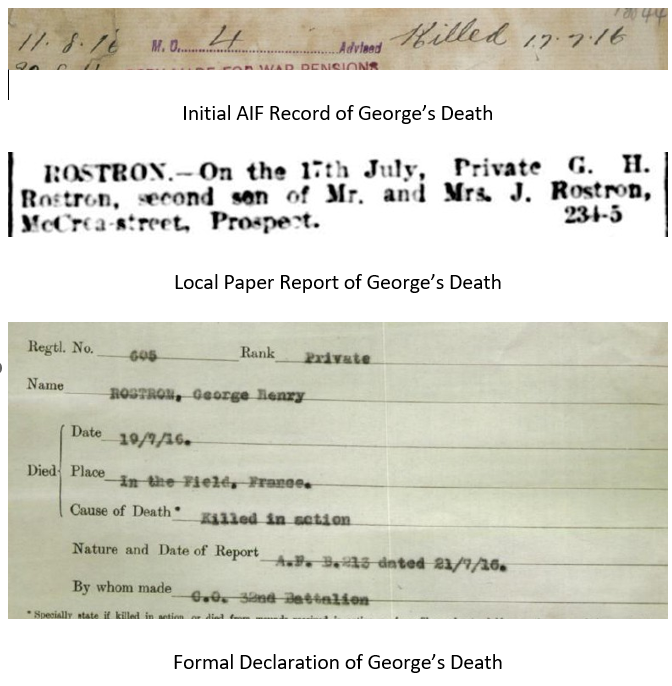 11.8.16 M. O. 4 Advised Killed 17.7.16
MADE FOR WAR PENSIONS
Initial AIF Record of George's Death
ROSTRON.—On the 17th July, Private G. H.
Rostron, second son of Mr. and Mrs. J. Rostron,
McCrea-street, Prospect. 234-5
Local Paper Report of George's Death
Regtl. No. 605 Rank Private
Name ROSTRON, George Henry
Died
Date 19/7/16.
Place In the Field, France.
Cause of Death* Killed in action
Nature and Date of Report A.F. B.213 dated 21/7/16.
By whom made C.O. 32nd Battalion
* Specially state if killed in action, or died from
Formal Declaration of George's Death